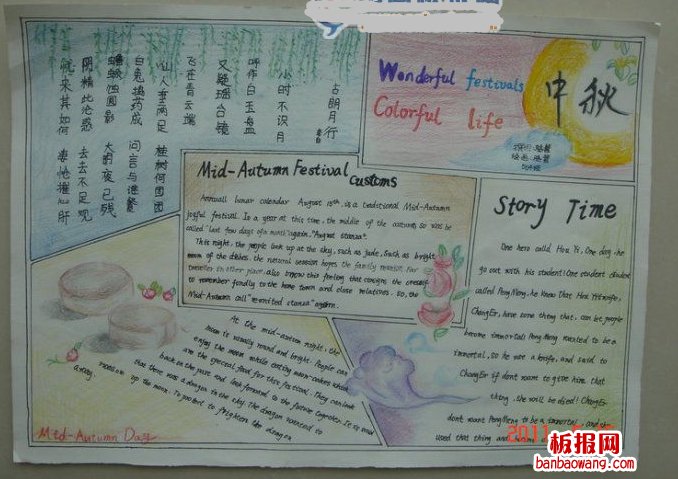 古朗月行
小时不识月
呼作白玉盘
又疑瑶台镜
飞在青云端
仙人垂两足 桂树何团团
白兔捣药成 问言与谁餐
蟾蜍蚀圆影 大明夜已残
阴精此沦惑 去去不足观
忧来其如何
Wonderful festivals
Colorful life
中秋
Mid-Autumn Festival
Customs
Annuall lunar calendar August 15th, is a traditional Mid-Autumn
joyful festival. In a year at this time, the middle of the autumn, so was be
called "last few days of a month"again, "August stanza".
This night, the people look up at the sky, such as jade, such as bright
moon of the dishes, the natural session hopes the family reunion. Far
traveller in other place, also borrow this feeling that consigns the oneself
to remember fondly to the home town and close relatives. So, the
Mid-Autumn call "reunited stanza" again.
Story Time
One hero called Hou Yi, One day, he
go out with his student! One student
called Peng Meng, he know that Hou Yi's wife,
Chang Er, have some thing that, can let people
become immortal! Peng Meng wanted to be a
immortal, so he use a knife, and said to
Chang Er if don't want to give him that
thing, she will be died! Chang Er
don't want Peng Meng to be a immortal, and
used that thing and
At the mid-autumn night, the
moon is usually round and bright. People can
enjoy the moon while eating moon-cakes which
are the special food for this festival. They can look
back on the past and look forward to the future together. It is said
that there was a dragon in the sky. The dragon wanted to
swallow up the moon. To protect to frighten the dragon
away.
Mid-Autumn Day
2011
板报网
banbaowang.com